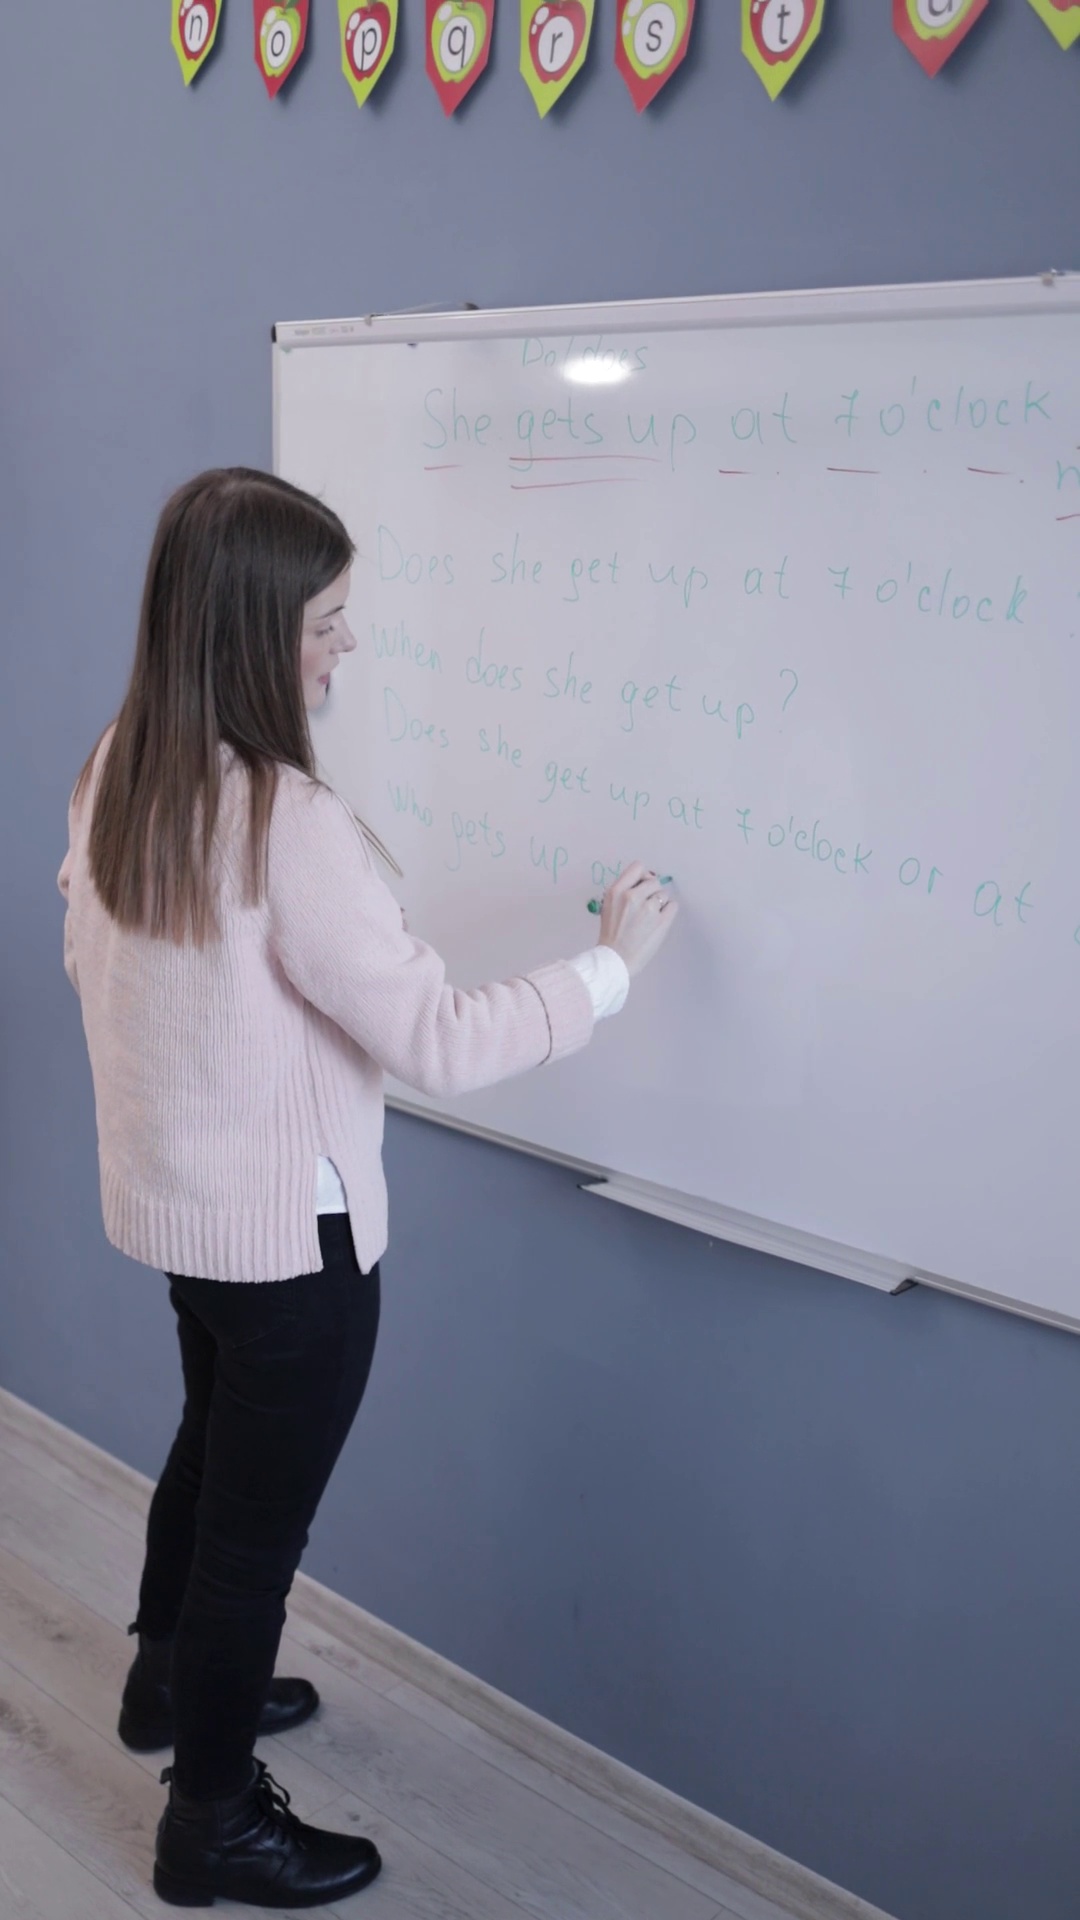 n o p q r s t u
Do/does
She gets up at 7 o'clock
Does she get up at 7 o'clock ?
When does she get up ?
Does she get up at 7 o'clock or at
Who gets up at